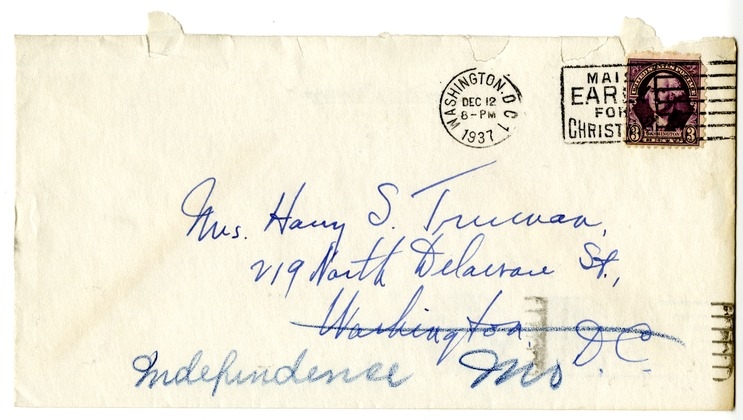 WASHINGTON, D.C. 1
DEC 12
8-PM
1937
MAI
EAR
FOR
CHRIST
UNITED STATES POSTAGE
WASHINGTON
3 3
Mrs. Harry S. Truman,
219 North Delaware St.,
Washington D.C.
Independence Mo